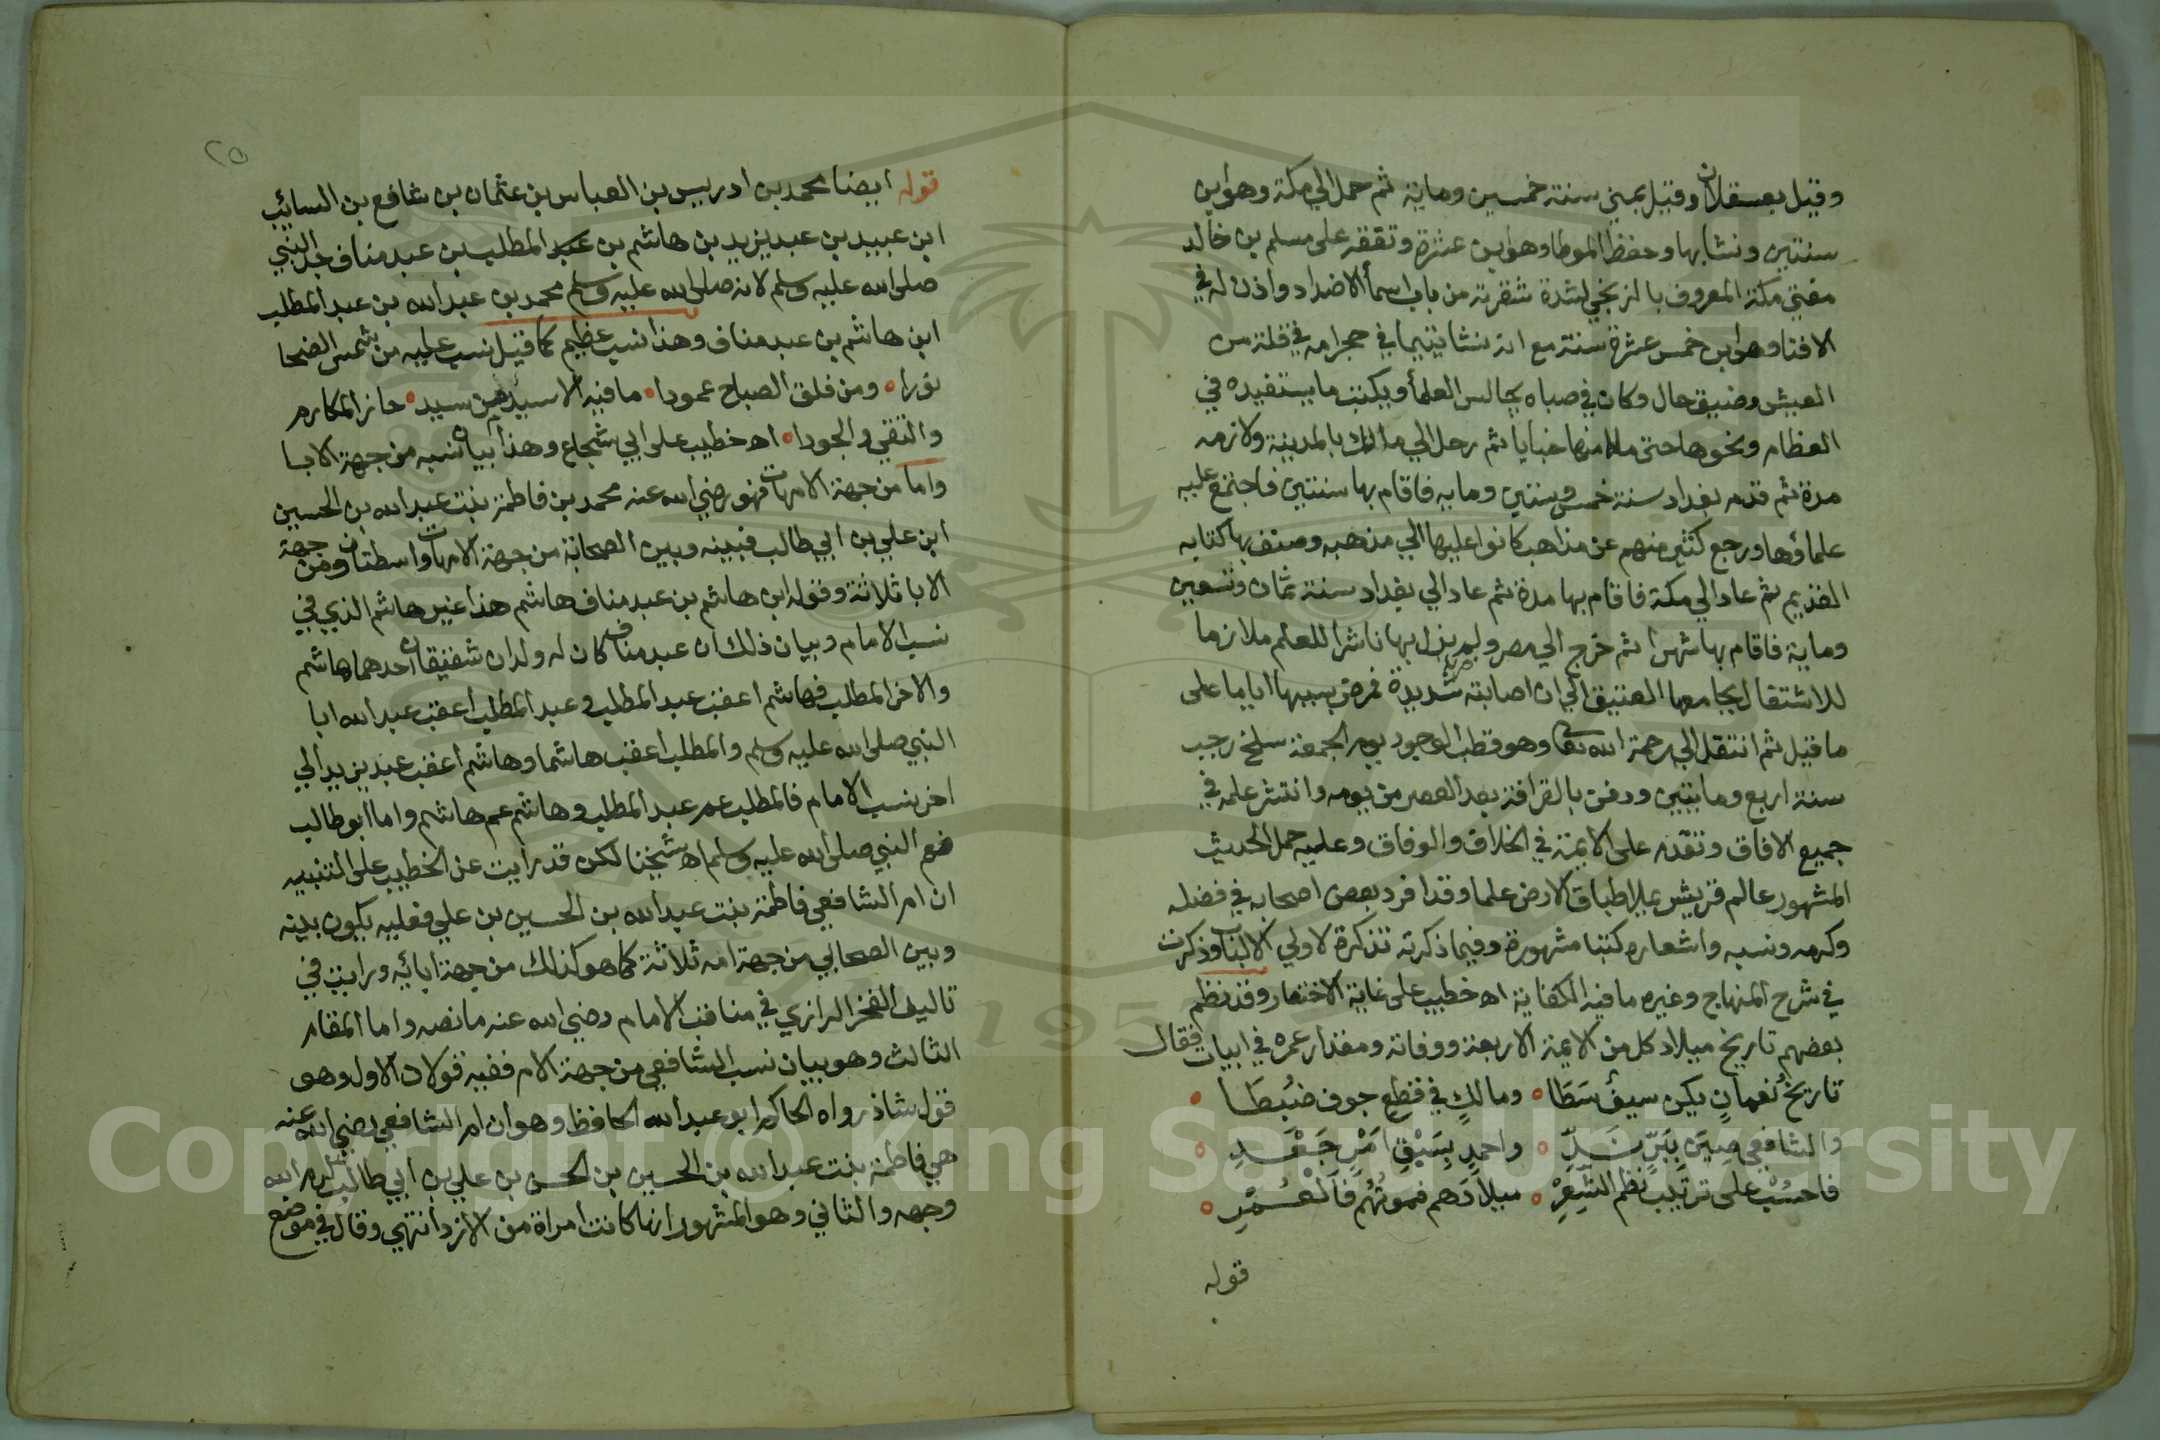 وقيل بعسقلان وقيل بمني سنة خمسين ومايه ثم حمل الي مكة وهو ابن
سنتين ونشا بها وحفظ الموطا وهو ابن عشرة وتفقه علي مسلم بن خالد
مفتي مكة المعروف بالزنجي لشدة شقرته من باب اسما الاضداد واذن له في
الافتا وهو ابن خمس عشرة سنة مع انه نشا يتيما في حجر امه في قلة من
العيش وضيق حال وكان في صباه يجالس العلما ويكتب ما يستفيده في
العظام ونحوها حتى ملا منها خبايا ثم رحل الي مالك بالمدينة ولازمه
مدة ثم قدم بغداد سنة خمس وتسعين ومايه فاقام بها سنتين فاجتمع عليه
علماؤها ورجع كثير منهم عن مذاهب كانوا عليها الي مذهبه وصنف بها كتابه
القديم ثم عاد الي مكة فاقام بها مدة ثم عاد الي بغداد سنة ثمان وتسعين
وماية فاقام بها شهرا ثم خرج الي مصر ولم يزل بها ناشرا للعلم ملازما
للاشتغال بجامعها العتيق الي ان اصابته ضربة شديدة فمرض بسببها اياما على
ما قيل ثم انتقل الي رحمة الله تعالى وهو قطب الوجود يوم الجمعة سلخ رجب
سنة اربع ومايتين ودفن بالقرافة بعد العصر من يومه وانتشر علمه في
جميع الافاق وتقدم على الايمة في الخلاف والوفاق وعليه حمل الحديث
المشهور عالم قريش يملا طباق الارض علما وقد افرد بعض اصحابه في فضله
وكرمه ونسبه واشعاره كتبا مشهورة وفيما ذكرته تذكرة لاولي الالباب وذكرت
في شرح المنهاج وغيره ما فيه الكفاية اه خطيب على غاية الاختصار وقد نظم
بعضهم تاريخ ميلاد كل من الايمة الاربعة ووفاته ومقدار عمره في ابيات فقال
تاريخُ نُعمانٍ يكن سيفٌ سَطَا ومالكٍ في قطعِ جوف ضُبِطَا
والشافعي صِين بِبَرِّ نَدّ واحمدٍ بِسَبْقِ اَمْرٍ جَعْدِ
فاحسُبْ على ترتيب نظم الشِّعِرْ ميلادَهم فموتُهُم فالعُمْرِ
قوله
٢٥
قوله ايضا محمد بن ادريس بن العباس بن عثمان بن شافع بن السايب
ابن عبيد بن عبد يزيد بن هاشم بن عبد المطلب بن عبد مناف جد النبي
صلى الله عليه وسلم لانه صلى الله عليه وسلم محمد بن عبد الله بن عبد المطلب
ابن هاشم بن عبد مناف وهذا نسب عظيم كما قيل نسب عليه من شمس الضحا
نورا ومن فلق الصباح عمودا ما فيه الا سيد من سيد حاز المكارم
والتقي والجودا اه خطيب على ابي شجاع وهذا بيان نسبه من جهة الابا
واما من جهة الامهات فهو رضي الله عنه محمد بن فاطمة بنت عبد الله بن الحسين
ابن علي بن ابي طالب فبينه وبين الصحابة من جهة الامهات واسطتان ومن جهة
الابا ثلاثة وقوله ابن هاشم بن عبد مناف هاشم هذا غير هاشم الذي في
نسب الامام وبيان ذلك ان عبد مناف كان له ولدان شقيقان احدهما هاشم
والاخر المطلب فهاشم اعقب عبد المطلب وعبد المطلب اعقب عبد الله ابا
النبي صلى الله عليه وسلم والمطلب اعقب هاشما وهاشم اعقب عبد يزيد الي
اخر نسب الامام فالمطلب عم عبد المطلب وهاشم عم هاشم واما ابو طالب
فعم النبي صلى الله عليه وسلم اه شيخنا لكن قد رايت عن الخطيب على التنبيه
ان ام الشافعي فاطمة بنت عبد الله بن الحسين بن علي فعليه يكون بينه
وبين الصحابي من جهة امه ثلاثة كما هو كذلك من جهة ابائيه ورايت في
تاليف الفخر الرازي في مناقب الامام رضي الله عنه ما نصه واما المقام
الثالث وهو بيان نسب الشافعي من جهة الام ففيه قولان الاول وهو
قول شاذ رواه الحاكم ابو عبد الله الحافظ وهو ان ام الشافعي رضي الله عنه
هي فاطمة بنت عبد الله بن الحسين بن الحسن بن علي بن ابي طالب كرم الله
وجهه والثاني وهو المشهور انها كانت امراة من الازد انتهي وقال في موضع
Copyright © King Saud University
1957